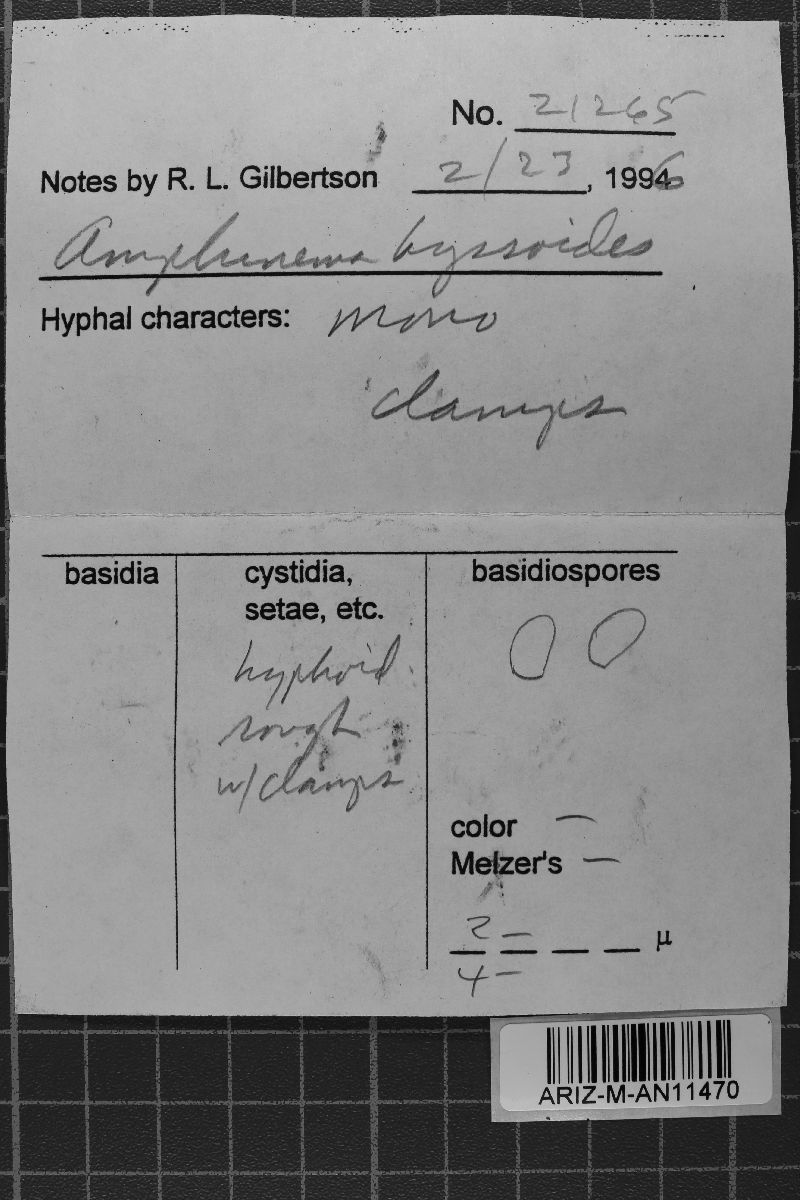 No. 21265
Notes by R. L. Gilbertson 2/23, 1996
Amphinema byssoides
Hyphal characters: mono
clamps
basidia
cystidia,
setae, etc.
hyphoid
rough
w/clamps
basidiospores
color —
Melzer's —
2 –
_ _ _ _ µ
4 –
ARIZ-M-AN11470